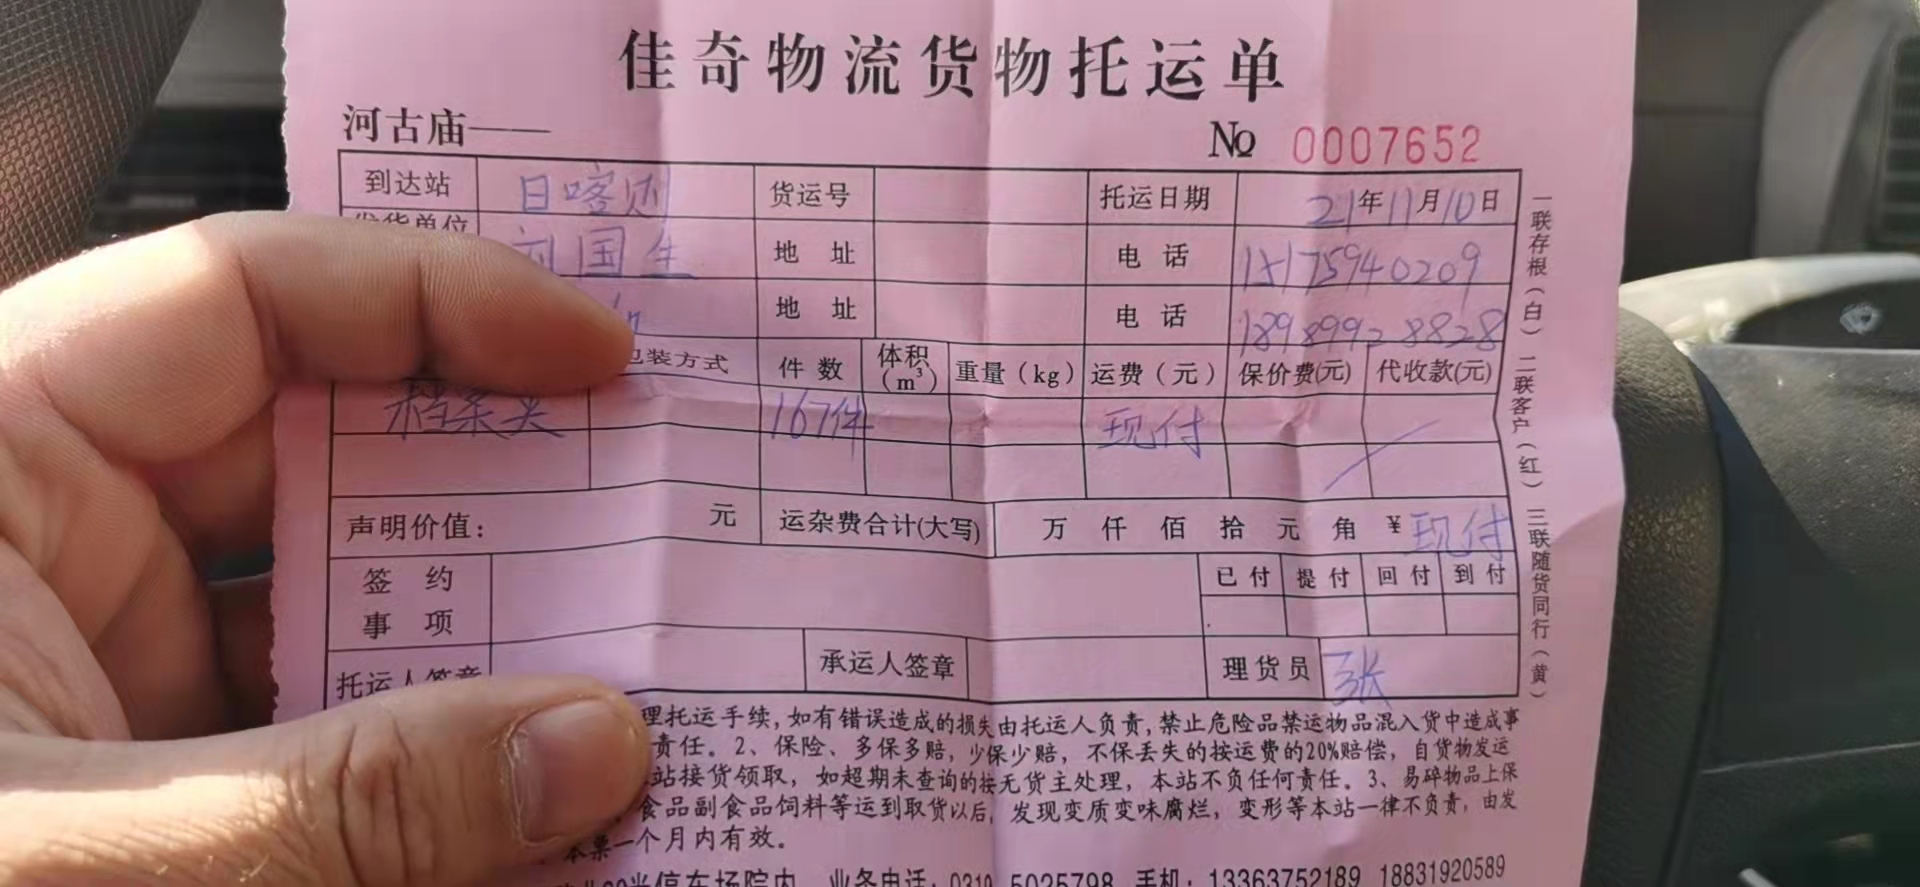 佳奇物流货物托运单
河古庙——
№ 0007652
到达站 日喀则 货运号 托运日期 21年11月10日
发货单位 国生 地 址 电 话 15175940209
地 址 电 话 18989928828
包装方式 件 数 体积（m³） 重量（kg） 运费（元） 保价费(元) 代收款(元)
档案类 167件 现付
声明价值： 元 运杂费合计(大写) 万 仟 佰 拾 元 角 ¥ 现付
签 约 事 项 已 付 提 付 回 付 到 付
托运人签章 承运人签章 理货员 张
理托运手续，如有错误造成的损失由托运人负责，禁止危险品禁运物品混入货中造成事
责任。2、保险、多保多赔，少保少赔，不保丢失的按运费的20%赔偿，自货物发运
站接货领取，如超期未查询的按无货主处理，本站不负任何责任。3、易碎物品上保
食品副食品饲料等运到取货以后，发现变质变味腐烂，变形等本站一律不负责，由发
本票一个月内有效。
米停车场院内 业务电话：0310 5025798 手机：13363752189 18831920589
一联存根（白）二联客户（红）三联随货同行（黄）